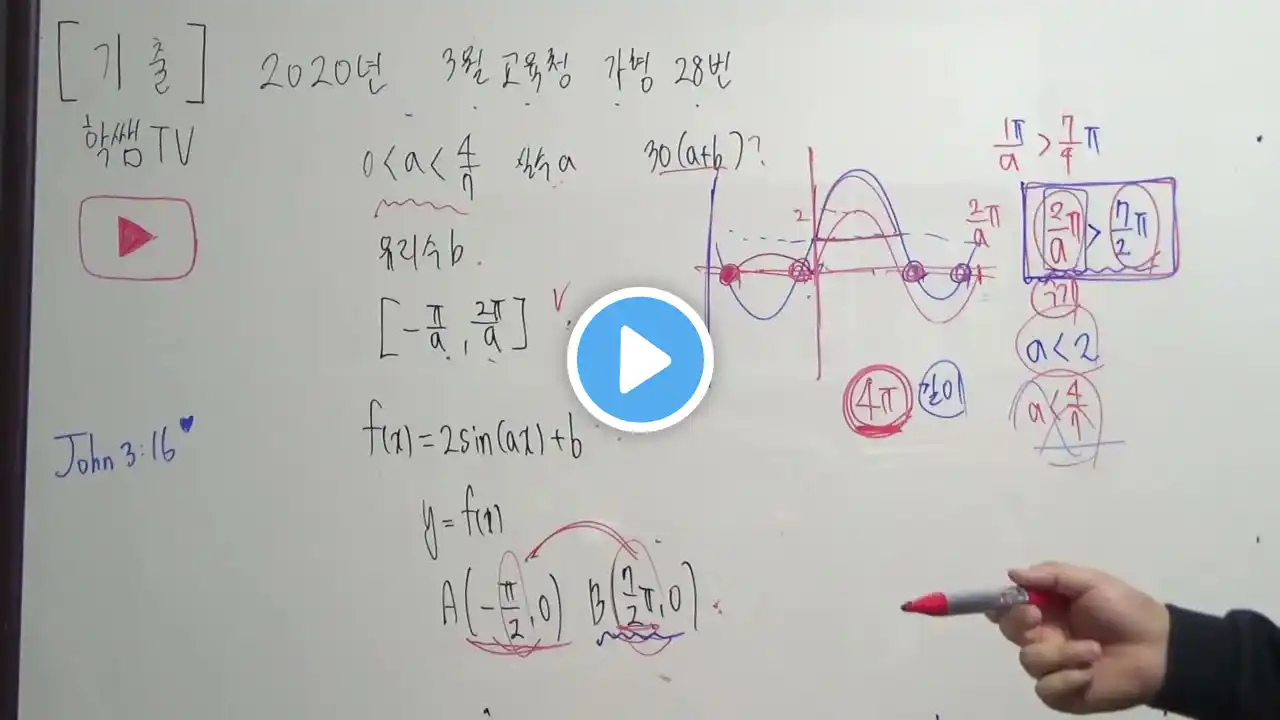 [기출] 2020년 3월 교육청 가형 28번
학쌤TV
0<a<4/7 실수a 30(a+b)?
유리수b.
[-π/a, 2π/a] V
f(x)=2sin(ax)+b
y=f(x)
A(-π/2,0) B(7/2π,0)
John 3:16♥
2
2π/a
4π 길이
1π/a>7/4π
2π/a>7/2π
주기
a<2
a<4/7